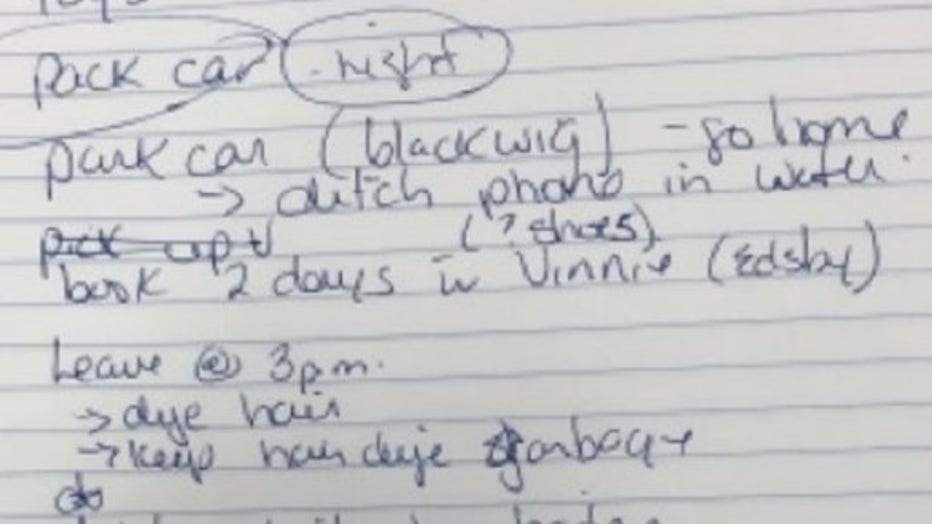 pack car night
park car (black wig) - go home
→ ditch phone in water.
pick up
(? shoes)
book 2 days in Vinnie (Edsby)
Leave @ 3pm.
→ dye hair
→ keep hair dye garbage
do